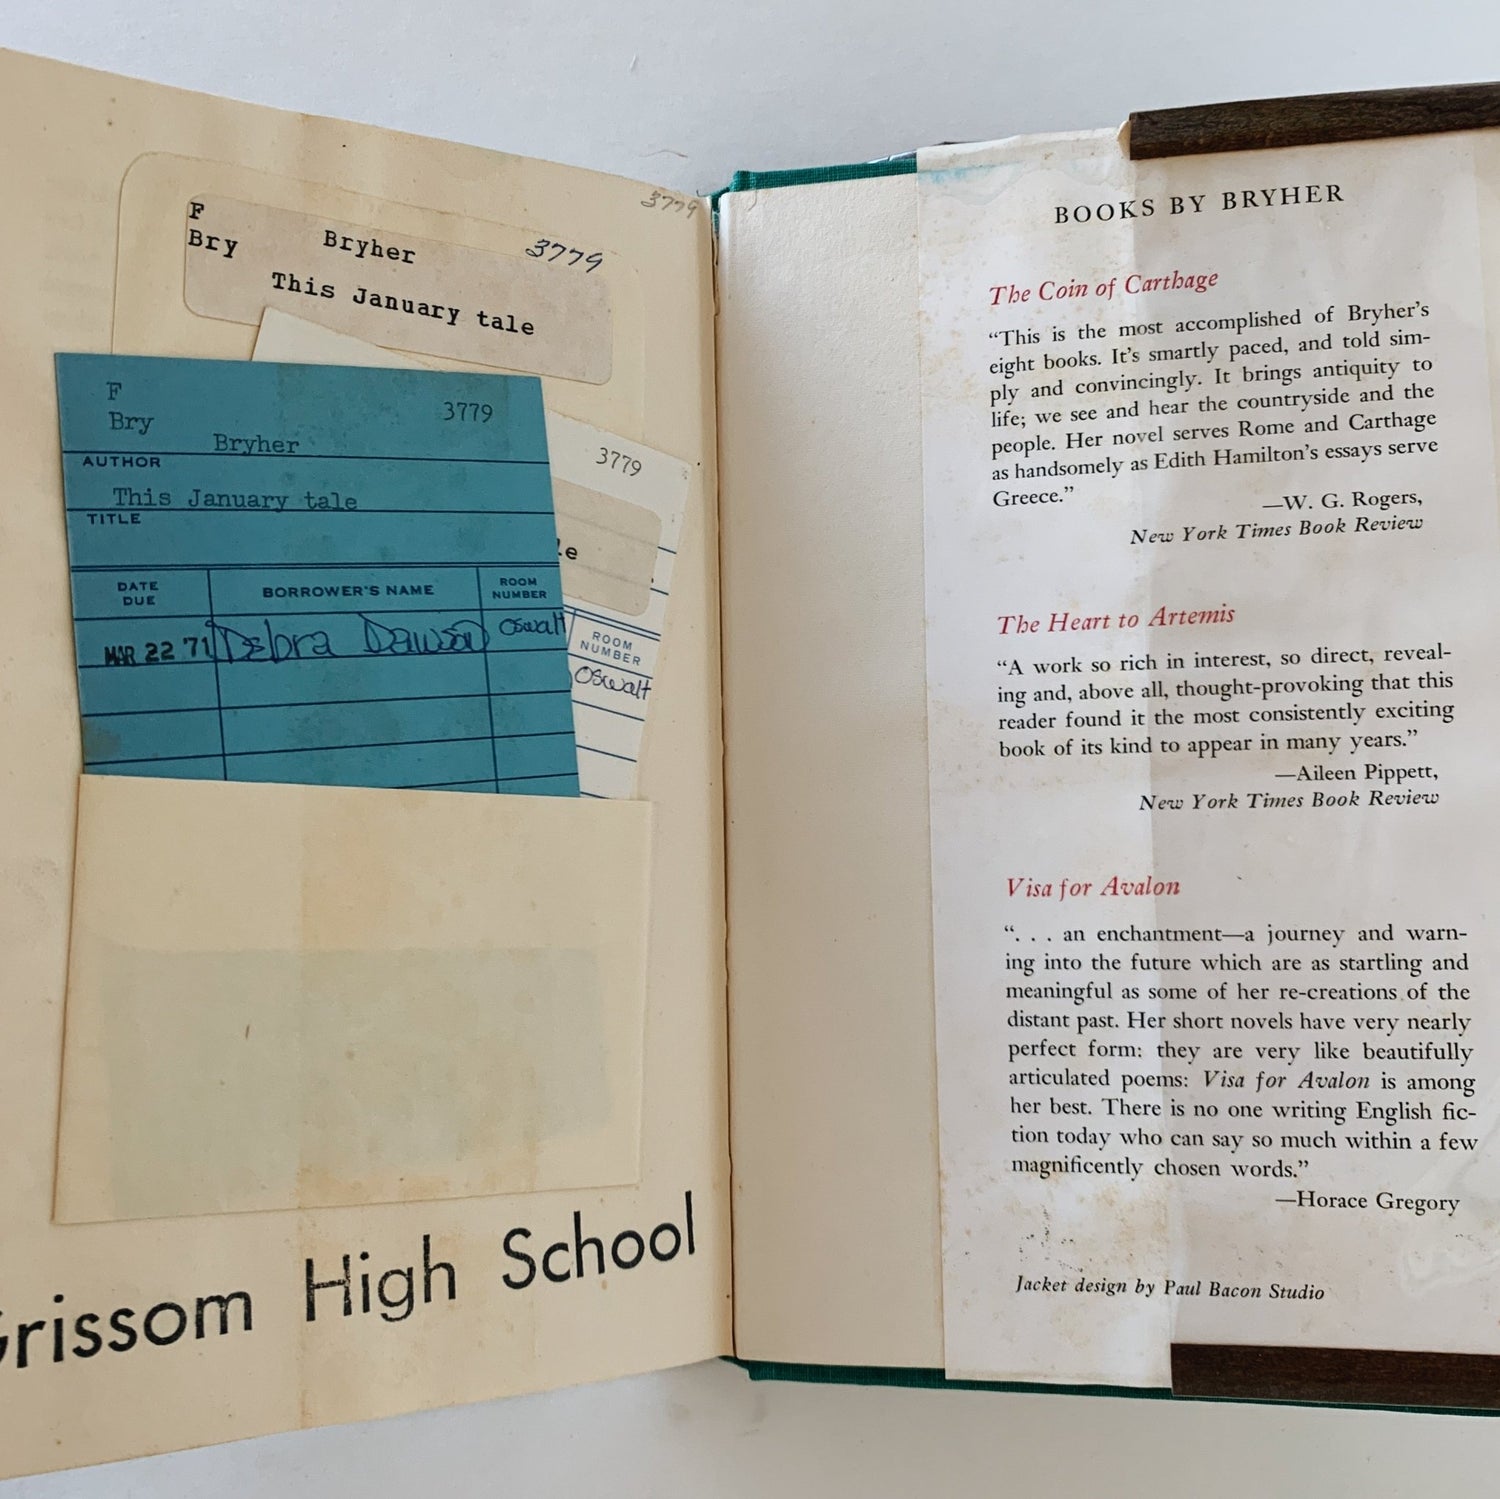 3779
F
Bry Bryher 3779
This January tale
F
Bry 3779
Bryher
AUTHOR
This January tale
TITLE
DATE DUE BORROWER'S NAME ROOM NUMBER
MAR 22 '71 Debra Dawson Oswalt
3779
le
ROOM
NUMBER
Oswalt
Grissom High School
BOOKS BY BRYHER
The Coin of Carthage
“This is the most accomplished of Bryher's
eight books. It's smartly paced, and told sim-
ply and convincingly. It brings antiquity to
life; we see and hear the countryside and the
people. Her novel serves Rome and Carthage
as handsomely as Edith Hamilton's essays serve
Greece.”
—W. G. Rogers,
New York Times Book Review
The Heart to Artemis
“A work so rich in interest, so direct, reveal-
ing and, above all, thought-provoking that this
reader found it the most consistently exciting
book of its kind to appear in many years.”
—Aileen Pippett,
New York Times Book Review
Visa for Avalon
“. . . an enchantment—a journey and warn-
ing into the future which are as startling and
meaningful as some of her re-creations of the
distant past. Her short novels have very nearly
perfect form: they are very like beautifully
articulated poems: Visa for Avalon is among
her best. There is no one writing English fic-
tion today who can say so much within a few
magnificently chosen words.”
—Horace Gregory
Jacket design by Paul Bacon Studio